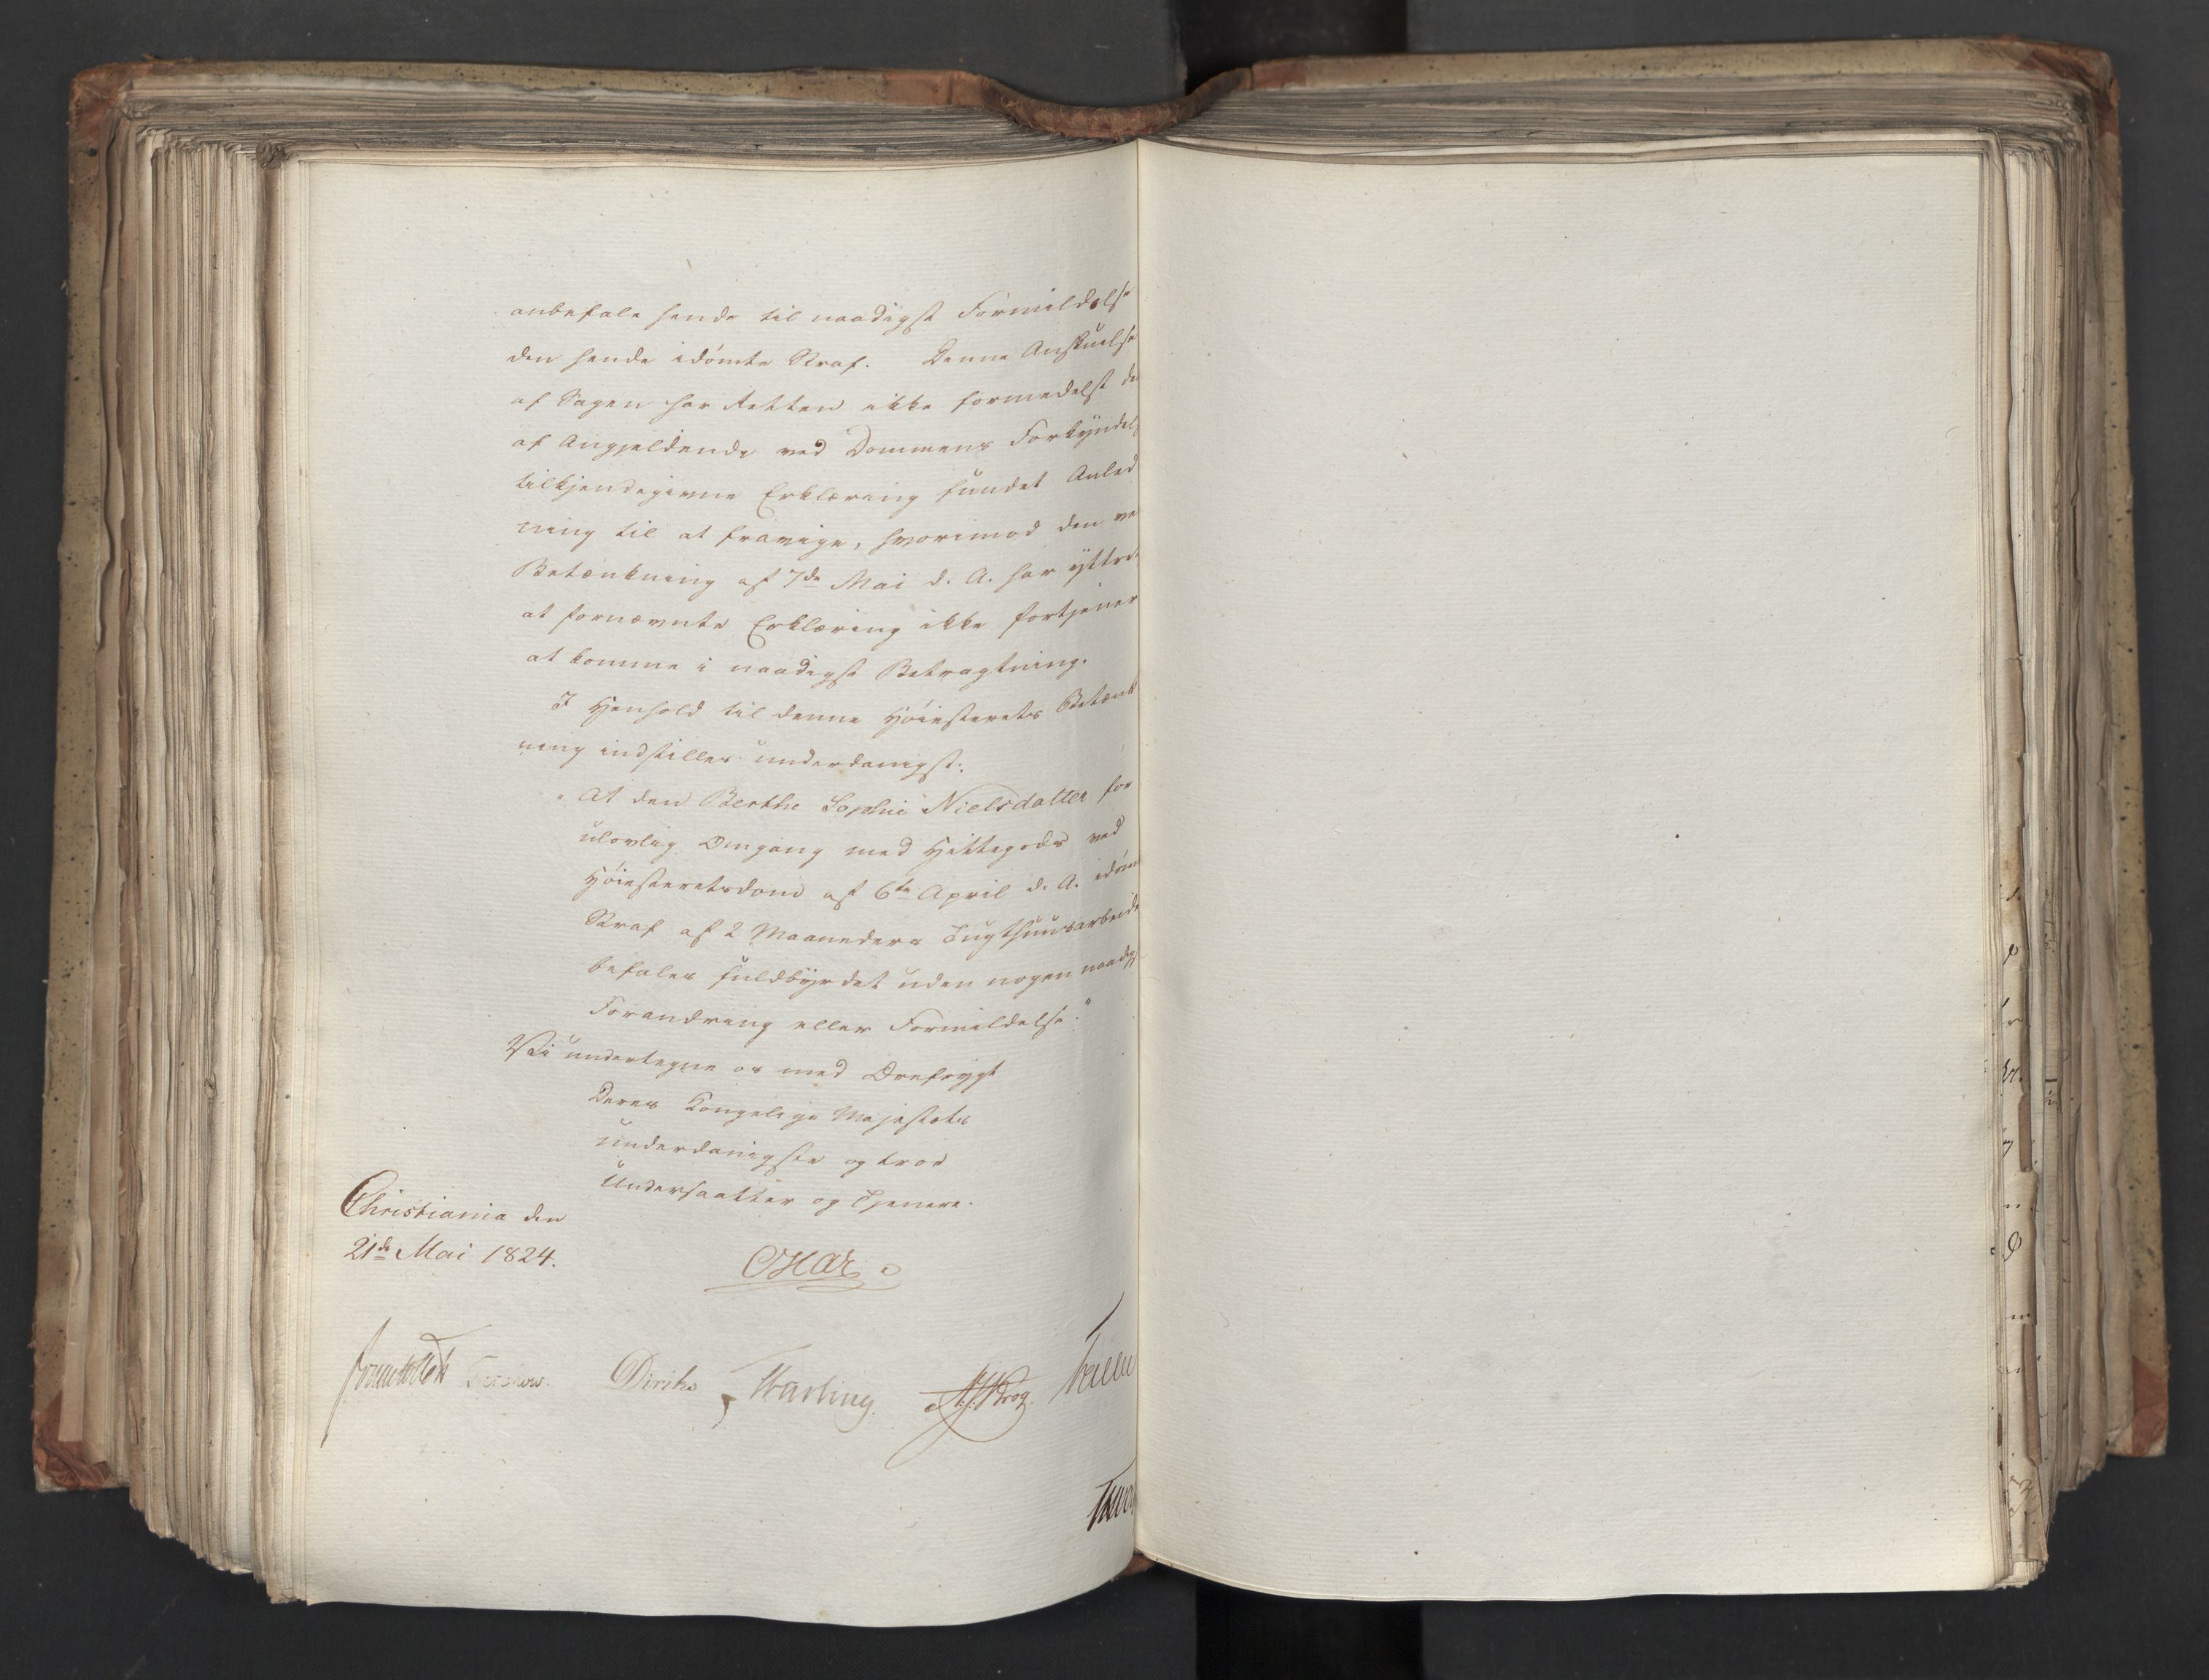 anbefale hende til naadigst Formildelse
den hende idømte Straf. Denne Anskuelse
af Sagen har Retten ikke formedelst de
af Angjeldende ved Dommens Forkyndel
tilkjendegivne Erklæring fundet Anled
ning til at fravige, hvorimod den ve
Betænkning af 7de Mai d. A. har yttret
at fornævnte Erklæring ikke fortjener
at komme i naadigst Betragtning.
I Henhold til denne Høiesterets Betænk
ning indstilles underdanigst:
"At den Berthe Sophie Nielsdatter for
ulovlig Omgang med Hittegods ved
Høiesteretsdom af 6te April d. A. idømt
Straf af 2 Maaneders Tugthuusarbeide
befales fuldbyrdet uden nogen naadigst
Forandring eller Formildelse."
Vi undertegne os med Ærefrygt
Deres Kongelige Majestæts
underdanigste og troe
Undersaatter og Tjenere.
Christiania den
21de Mai 1824.
Diriks
Krog